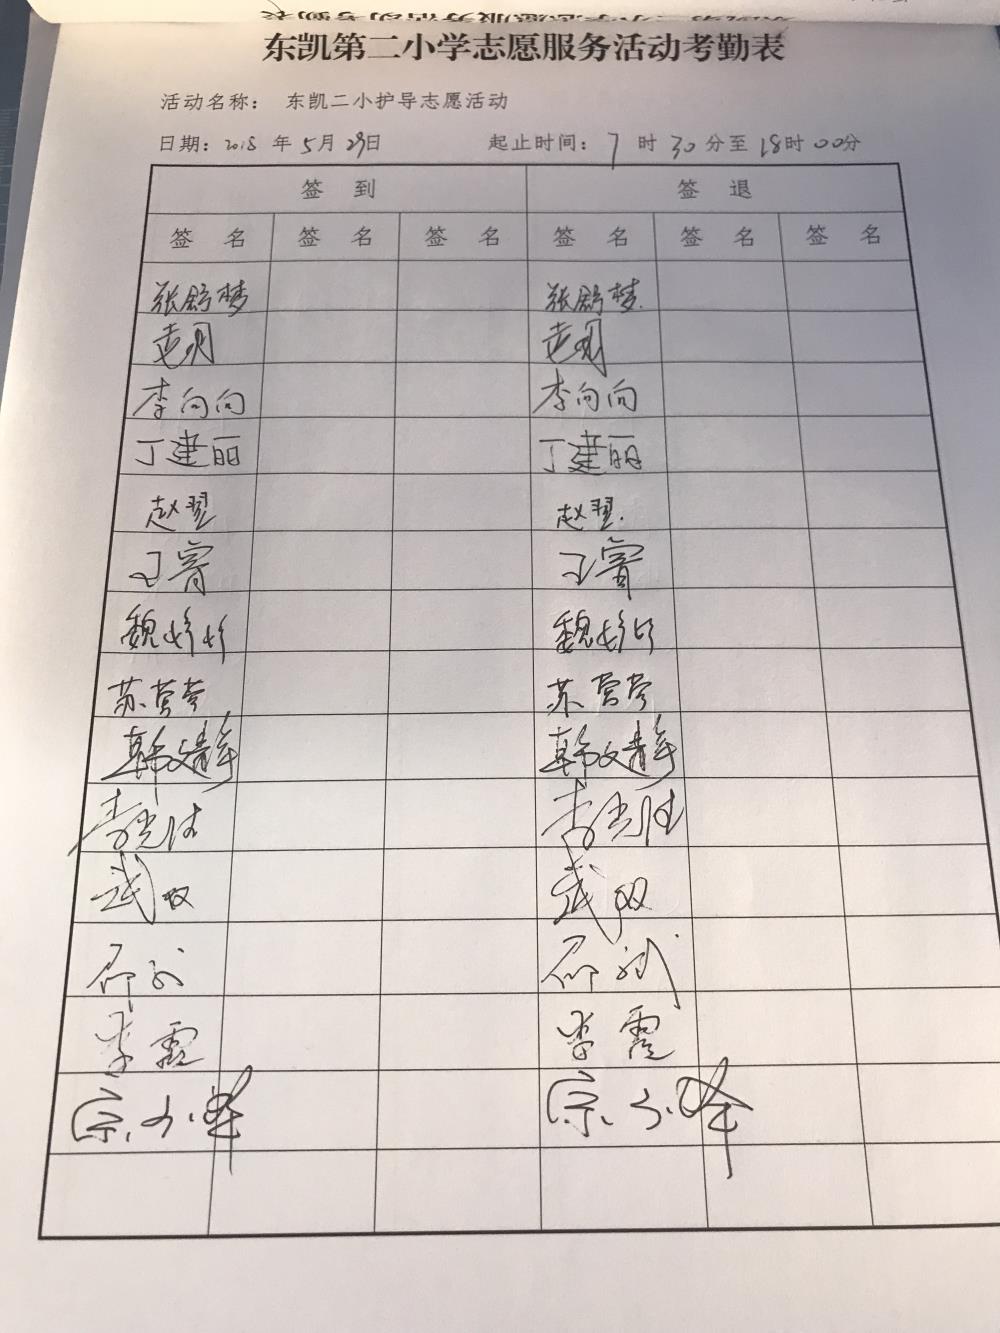 东凯第二小学志愿服务活动考勤表
活动名称： 东凯二小护导志愿活动
日期：2018 年 5 月 29 日 起止时间：7 时 30 分至 18 时 00 分
签 到 签 退
签 名 签 名 签 名 签 名 签 名 签 名
张舒梦 张舒梦
李向向 李向向
丁建丽 丁建丽
赵翌 赵翌
王睿 王睿
魏婷婷 魏婷婷
苏营营 苏营营
韩文静 韩文静
武双 武双
邵斌 邵斌
李霞 李霞
宗小峰 宗小峰